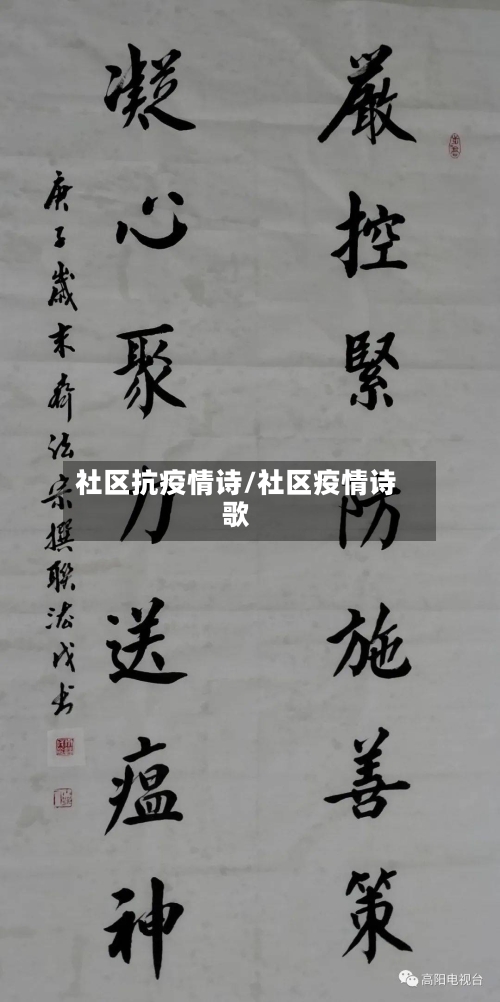 嚴控緊防施善策
凝心聚力送瘟神
庚子歲末齊法宗撰聯法戊书
社区抗疫情诗/社区疫情诗
歌
高阳电视台